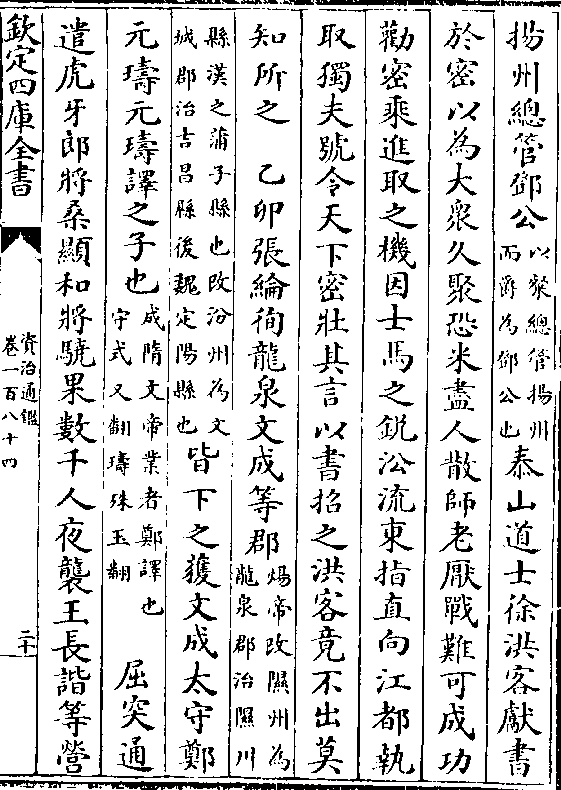 揚州總管鄧公以粲總管揚州而爵為鄧公也泰山道士徐洪客獻書
於密以為大衆久聚恐米盡人散師老厭戰難可成功
勸密乘進取之機因士馬之鋭沿流東指直向江都執
取獨夫號令天下密壯其言以書招之洪客竟不出莫
知所之　乙卯張綸徇龍泉文成等郡煬帝改隰州為龍泉郡治隰川
縣漢之蒲子縣也改汾州為文城郡治吉昌縣後魏定陽縣也皆下之獲文成太守鄭
元璹元璹譯之子也成隋文帝業者鄭譯也守式又翻璹殊玉翻　屈突通
遣虎牙郎將桑顯和將驍果數千人夜襲王長諧等營
欽定四庫全書
資治通鑑
卷一百八十四
二十